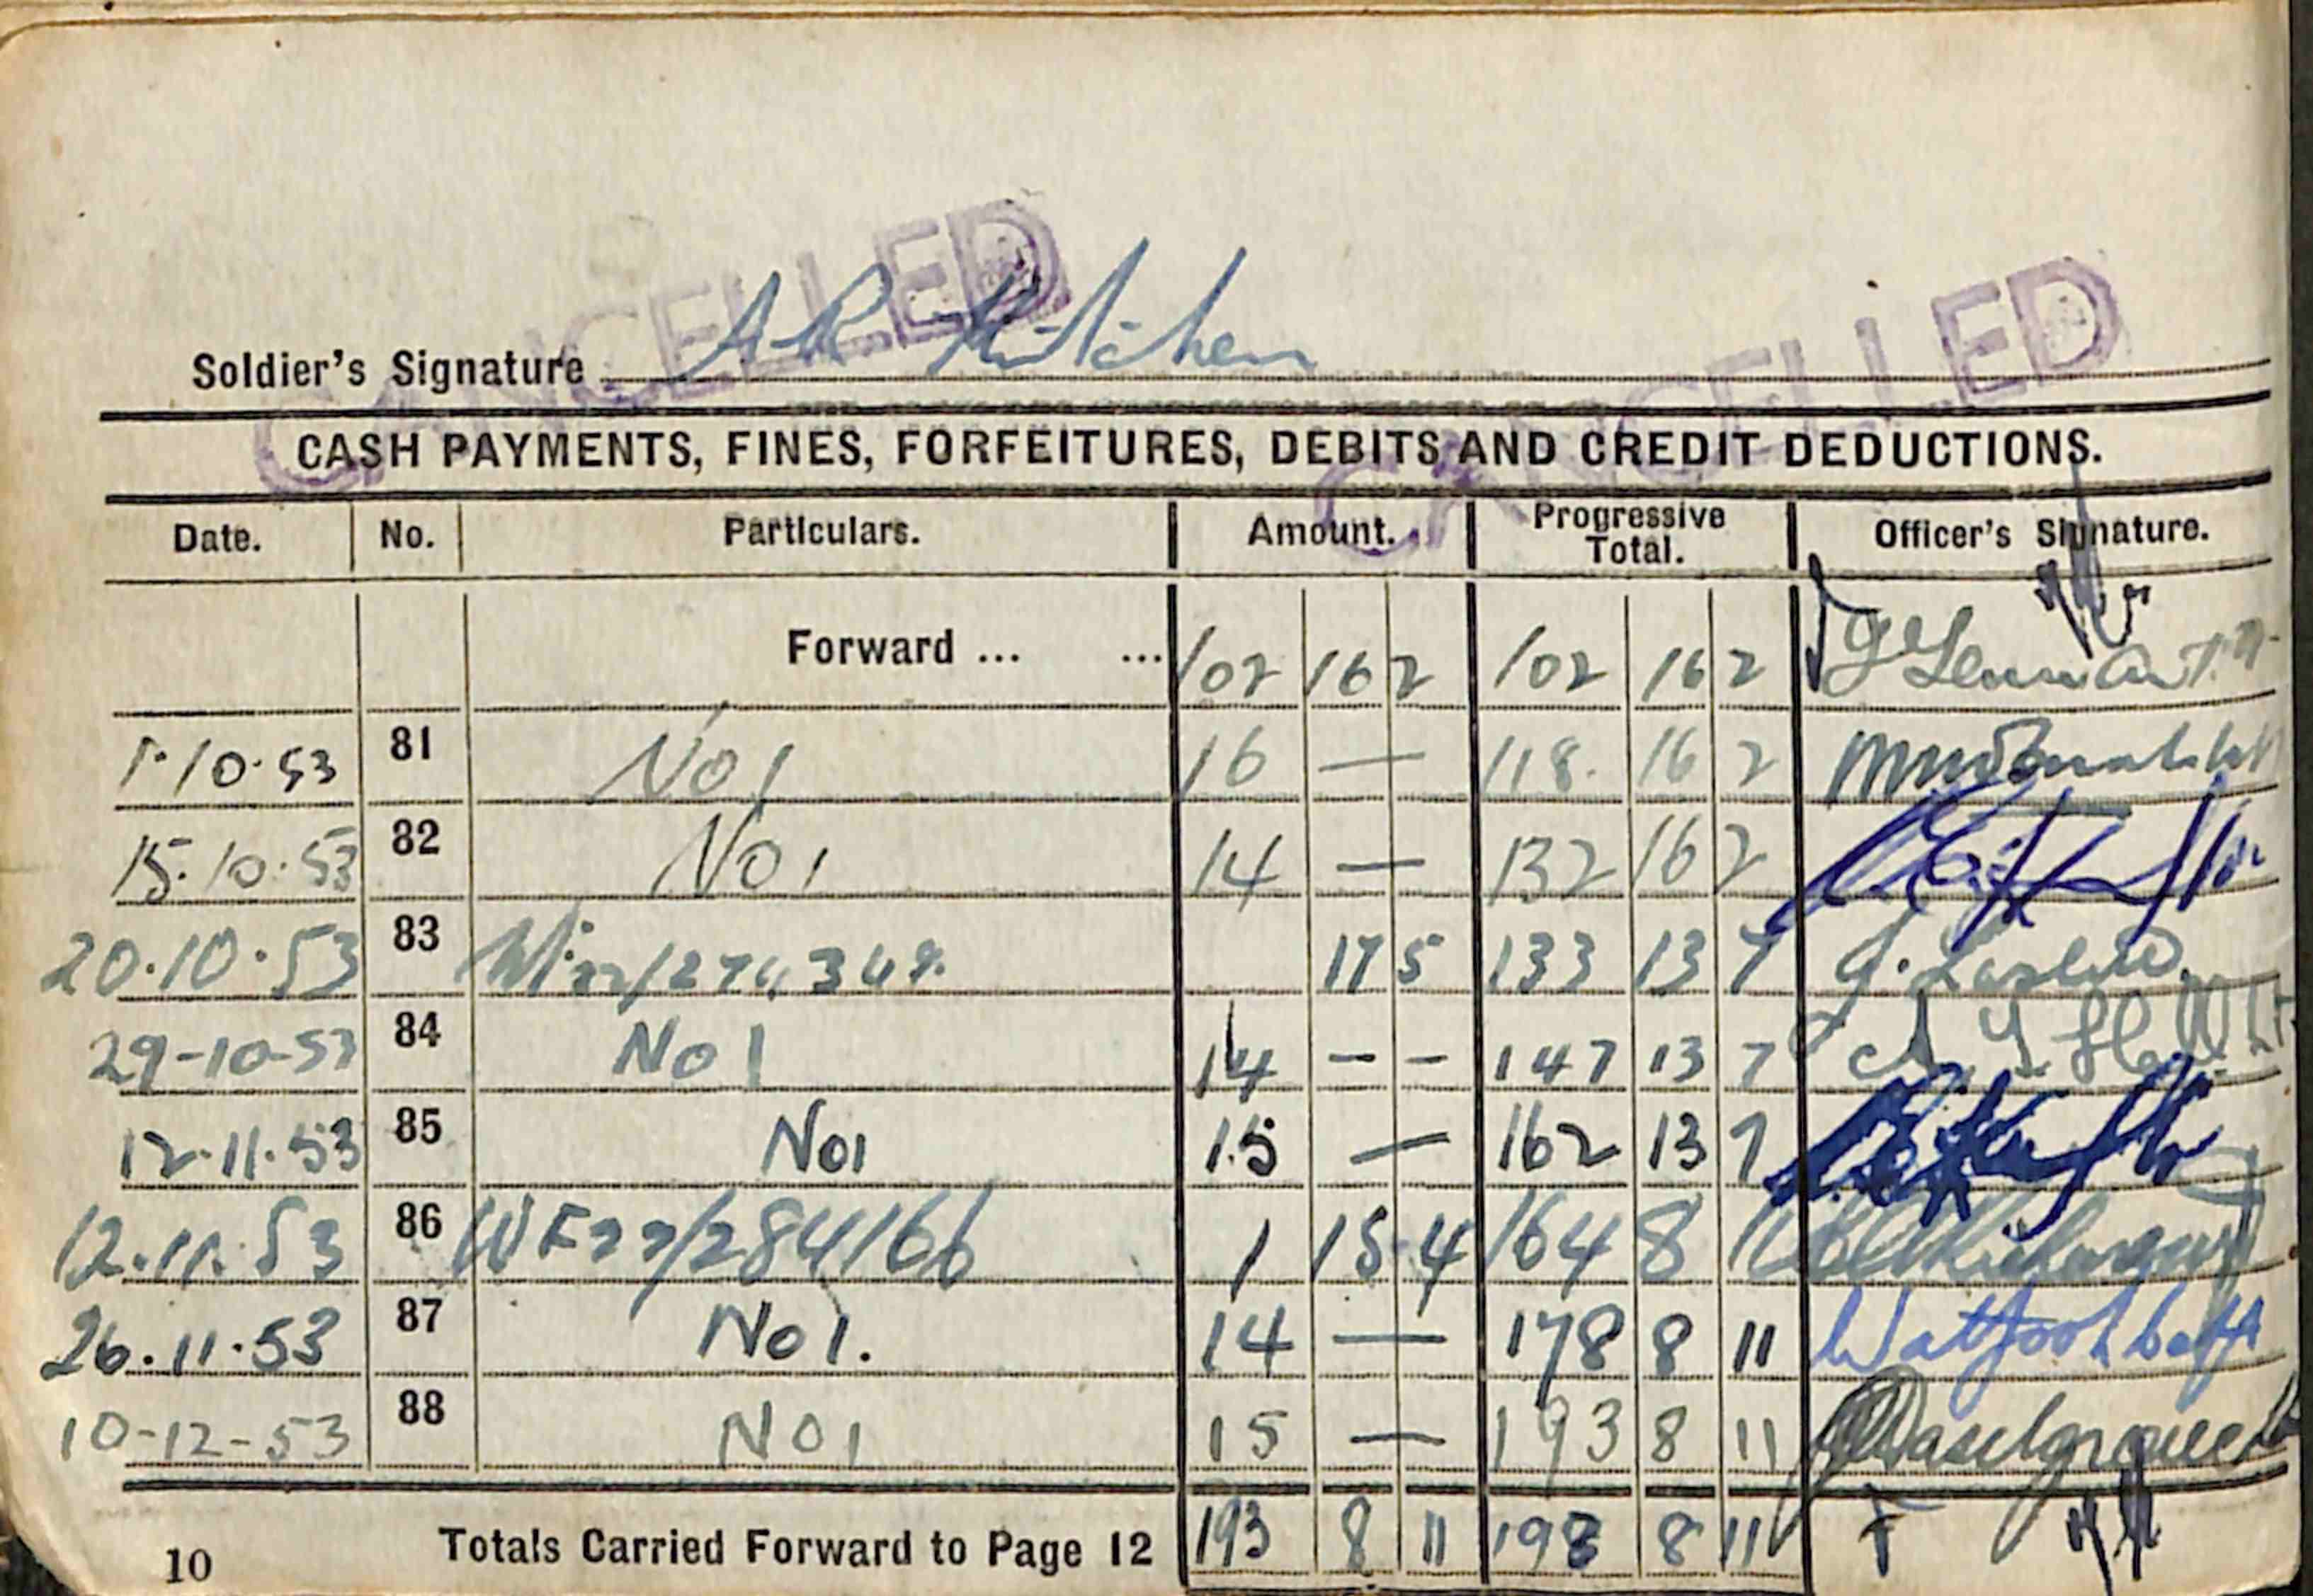 CANCELLED CANCELLED
Soldier's Signature A R Kitchen
CASH PAYMENTS, FINES, FORFEITURES, DEBITS AND CREDIT DEDUCTIONS.
Date. No. Particulars. Amount. Progressive Total. Officer's Signature.
Forward ... ... 102 16 2 102 16 2
1·10·53 81 No 1 16 — 118· 16 2
15·10·53 82 No 1 14 — 132 16 2
20·10·53 83 17 5 133 13 7
29-10-53 84 No 1 14 - - 147 13 7
12·11·53 85 No 1 15 — 162 13 7
12·11·53 86 WF22/284166 1 15 4 164 8 11
26·11·53 87 No 1. 14 — 178 8 11
10-12-53 88 NO 1 15 — 193 8 11
10 Totals Carried Forward to Page 12 193 8 11 193 8 11